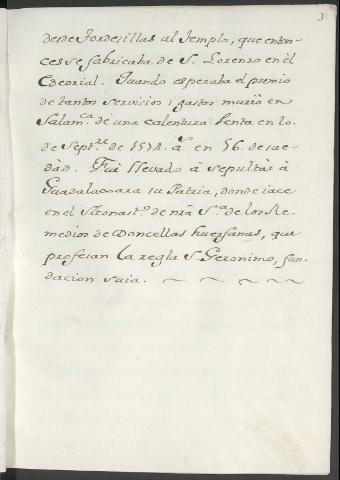 3
desde Tordesillas al Templo, que enton-
ces se fabricaba de S. Lorenzo en èl
Escorial. Quando esperaba el premio
de tantos servicios i gastos muriò en
Salam.ca de una calentura lenta en 10.
de Sept.re de 1574. a.s en 56. de su e-
dàd. Fuè llevado à sepultàr à
Guadalaxara su Patria, donde iace
en el Monast.o de nrã S.a de los Re-
medios de Doncellas huerfanas, que
profesan la regla S. Geronimo, fun-
dacion suia.